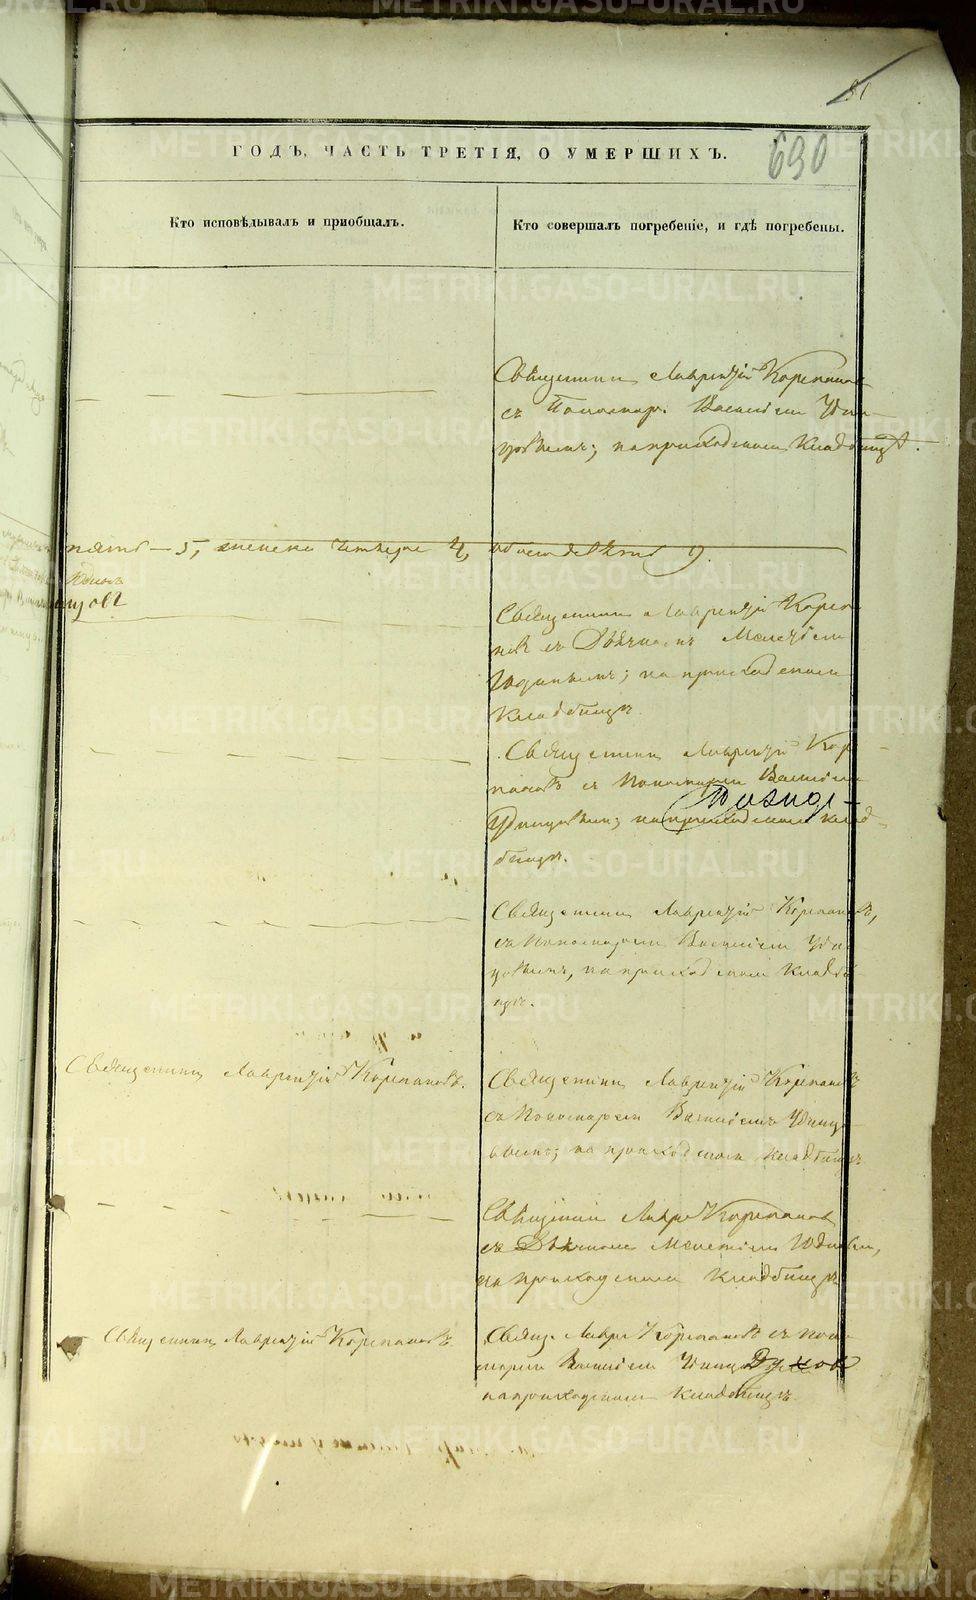 81
690
ГОДЪ, ЧАСТЬ ТРЕТІЯ, О УМЕРШИХЪ.
Кто исповѣдывалъ и пріобщалъ.
Кто совершалъ погребеніе, и гдѣ погребены.
Священникъ Лаврентій Корепановъ
съ Пономар. Василіемъ Удин-
цовымъ; на приходскомъ Кладбищѣ.
пять — 5, женска четыре 4, обоего девять 9.
Священникъ Лаврентій Корепа-
новъ съ Дьячкомъ Мелетіемъ
на приходскомъ
Кладбищѣ.
Священникъ Лаврентій Кор
пановъ съ Пономаремъ Василіемъ
Удинцовымъ; на приходскомъ клад-
бищѣ.
Священникъ Лаврентій Корепановъ,
съ Пономаремъ Василіемъ Удин
цовымъ, на приходскомъ Кладби
щѣ.
Священникъ Лаврентій Корепановъ.
Священникъ Лаврентій Корепановъ
съ Пономаремъ Василіемъ Удинцо-
вымъ; на приходскомъ Кладбищѣ
Священникъ Лавр Корепановъ
съ Дьячкомъ Мелетіемъ
на приходскомъ Кладбищѣ
Священникъ Лаврентій Корепановъ.
Свящ. Лавре Корепановъ съ Поно
маремъ Василіемъ
на приходскомъ Кладбищѣ.
METRIKI.GASO-URAL.RU